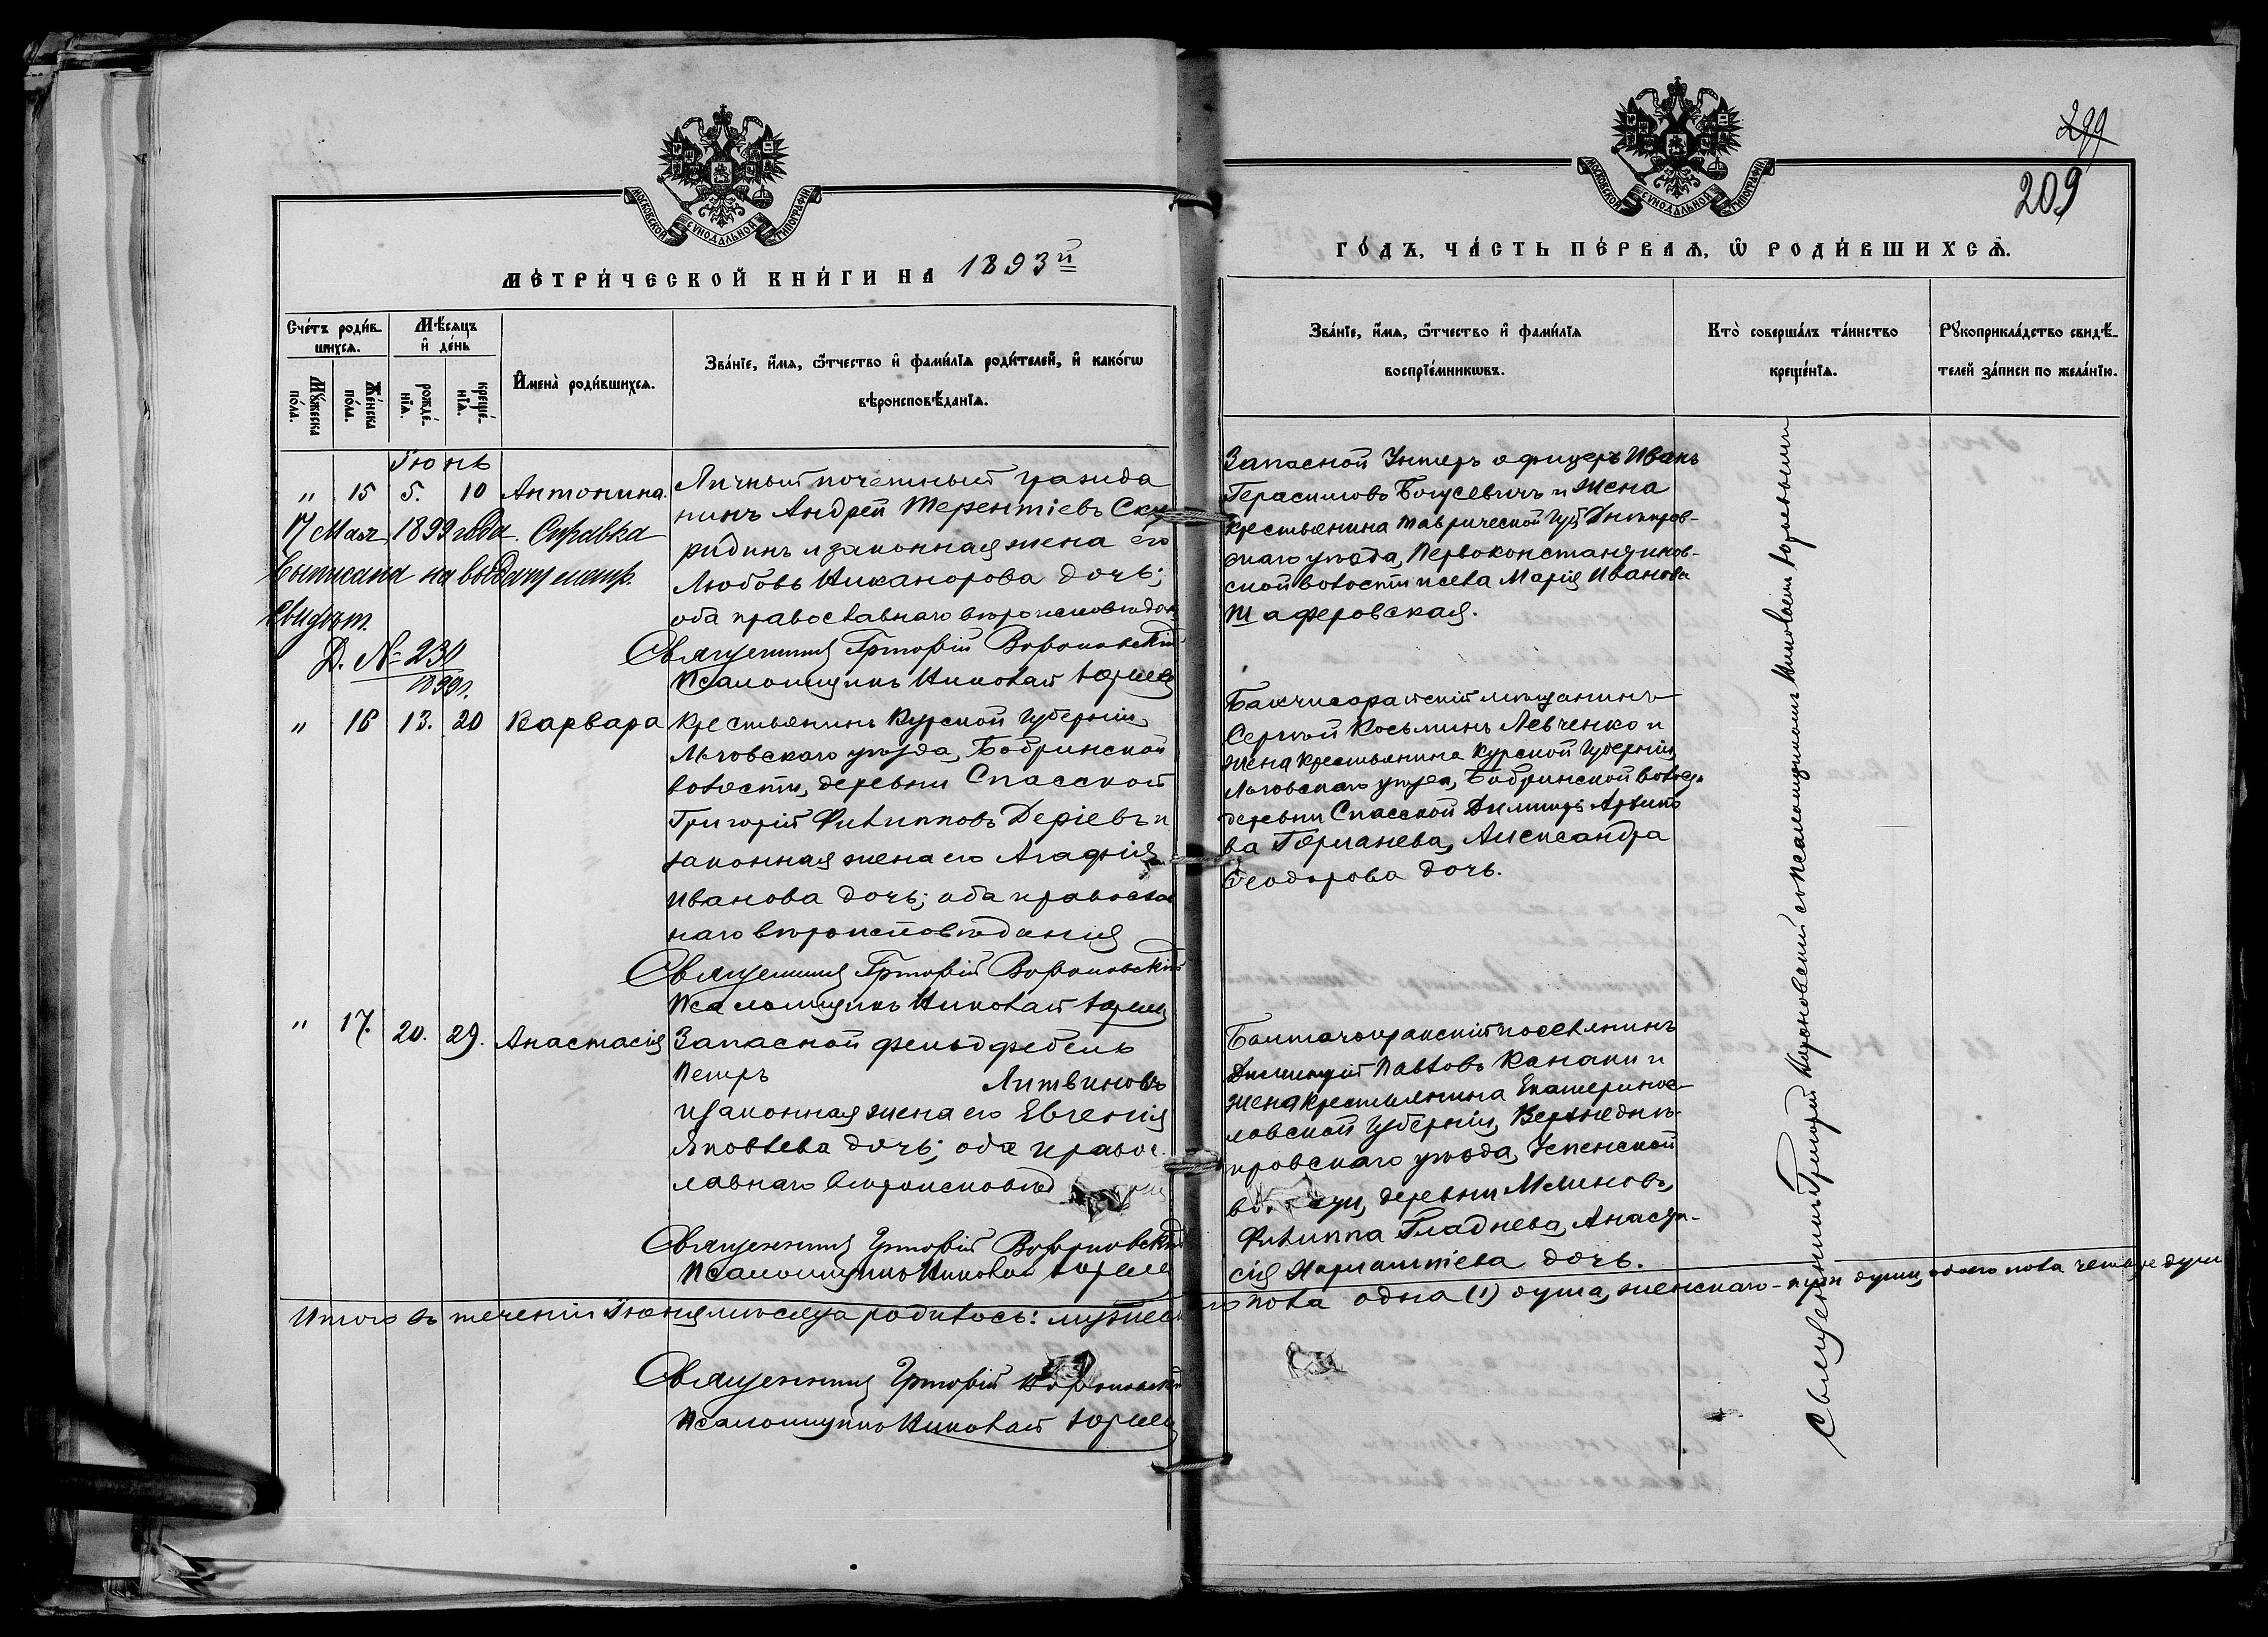 МОСКОВСКОЙ СУНОДАЛЬНОЙ ТИПОГРАФІИ
МЕТРИЧЕСКОЙ КНИГИ НА 1893й
Счетъ родившихся.
Мѣсяцъ и день
Имена родившихся.
Званіе, имя, отчество и фамилія родителей, и какогѡ
вѣроисповѣданія.
Мужеска пола.
Женска пола.
рожденія.
крещенія.
Іюнь
" 15 5. 10 Антонина.
Личный почетный гражда
нинъ Андрей Терентіевъ Ски
ридинъ и законная жена его
Любовь Никанорова дочь;
оба православнаго вѣроисповѣдан
Священникъ Григорій Вороновскій
Псаломщикъ Николай
17 Мая 1899 года. Справка
выписана на выдачу метр.
свидѣт.
Д. № 231
1899г.
" 16 13. 20 Варвара
Крестьянинъ Курской Губерніи
Льговскаго уѣзда, Бобринской
волости, деревни Спасской
Григорій Филипповъ Деріевъ и
законная жена его Агафія
Иванова дочь; оба правосла
наго вѣроисповѣданія
Священникъ Григорій Вороновскій
Псаломщикъ Николай
" 17. 20. 29. Анастасія
Запасной фельдфебель
Петръ Литвиновъ
и законная жена его Евгенія
Яковлева дочь; оба правос
лавнаго вѣроисповѣд
Священникъ Григорій Вороновскій
Псаломщикъ Николай
Итого въ теченіи Іюня мѣсяца родилось: мужеск го пола одна (1) душа, женскаго - три души, обоего пола четыре души
Священникъ Григорій Вороновскій
Псаломщикъ Николай
299
209
МОСКОВСКОЙ СУНОДАЛЬНОЙ ТИПОГРАФІИ
ГОДЪ, ЧАСТЬ ПЕРВАЯ, Ѡ РОДИВШИХСЯ.
Званіе, имя, отчество и фамилія
воспріемникѡвъ.
Кто совершалъ таинство
крещенія.
Рукоприкладство свидѣ-
телей записи по желанію.
Запасной Унтеръ офицеръ Иванъ
Герасимовъ Богусевичъ и жена
крестьянина Таврической Губ Днѣпров-
скаго уѣзда, Первоконстантинов-
ской волости и села Марія Иванова
Шаферовская.
Бакчисарайскій мѣщанинъ
Сергѣй Косьминъ Левченко и
жена крестьянина Курской Губерніи
Льговскаго уѣзда, Бобринской волост
деревни Спасской
Александра
Ѳеодорова дочь.
поселянинъ
Димитрій Павловъ Канаки и
жена крестьянина Екатеринос-
лавской Губерніи, Верхнеднѣ-
провскаго уѣзда, Успенской
деревни
Филиппа Гладнева, Анаста-
сія дочь.
Священникъ Григорій Вороновскій съ псаломщикомъ Николаемъ